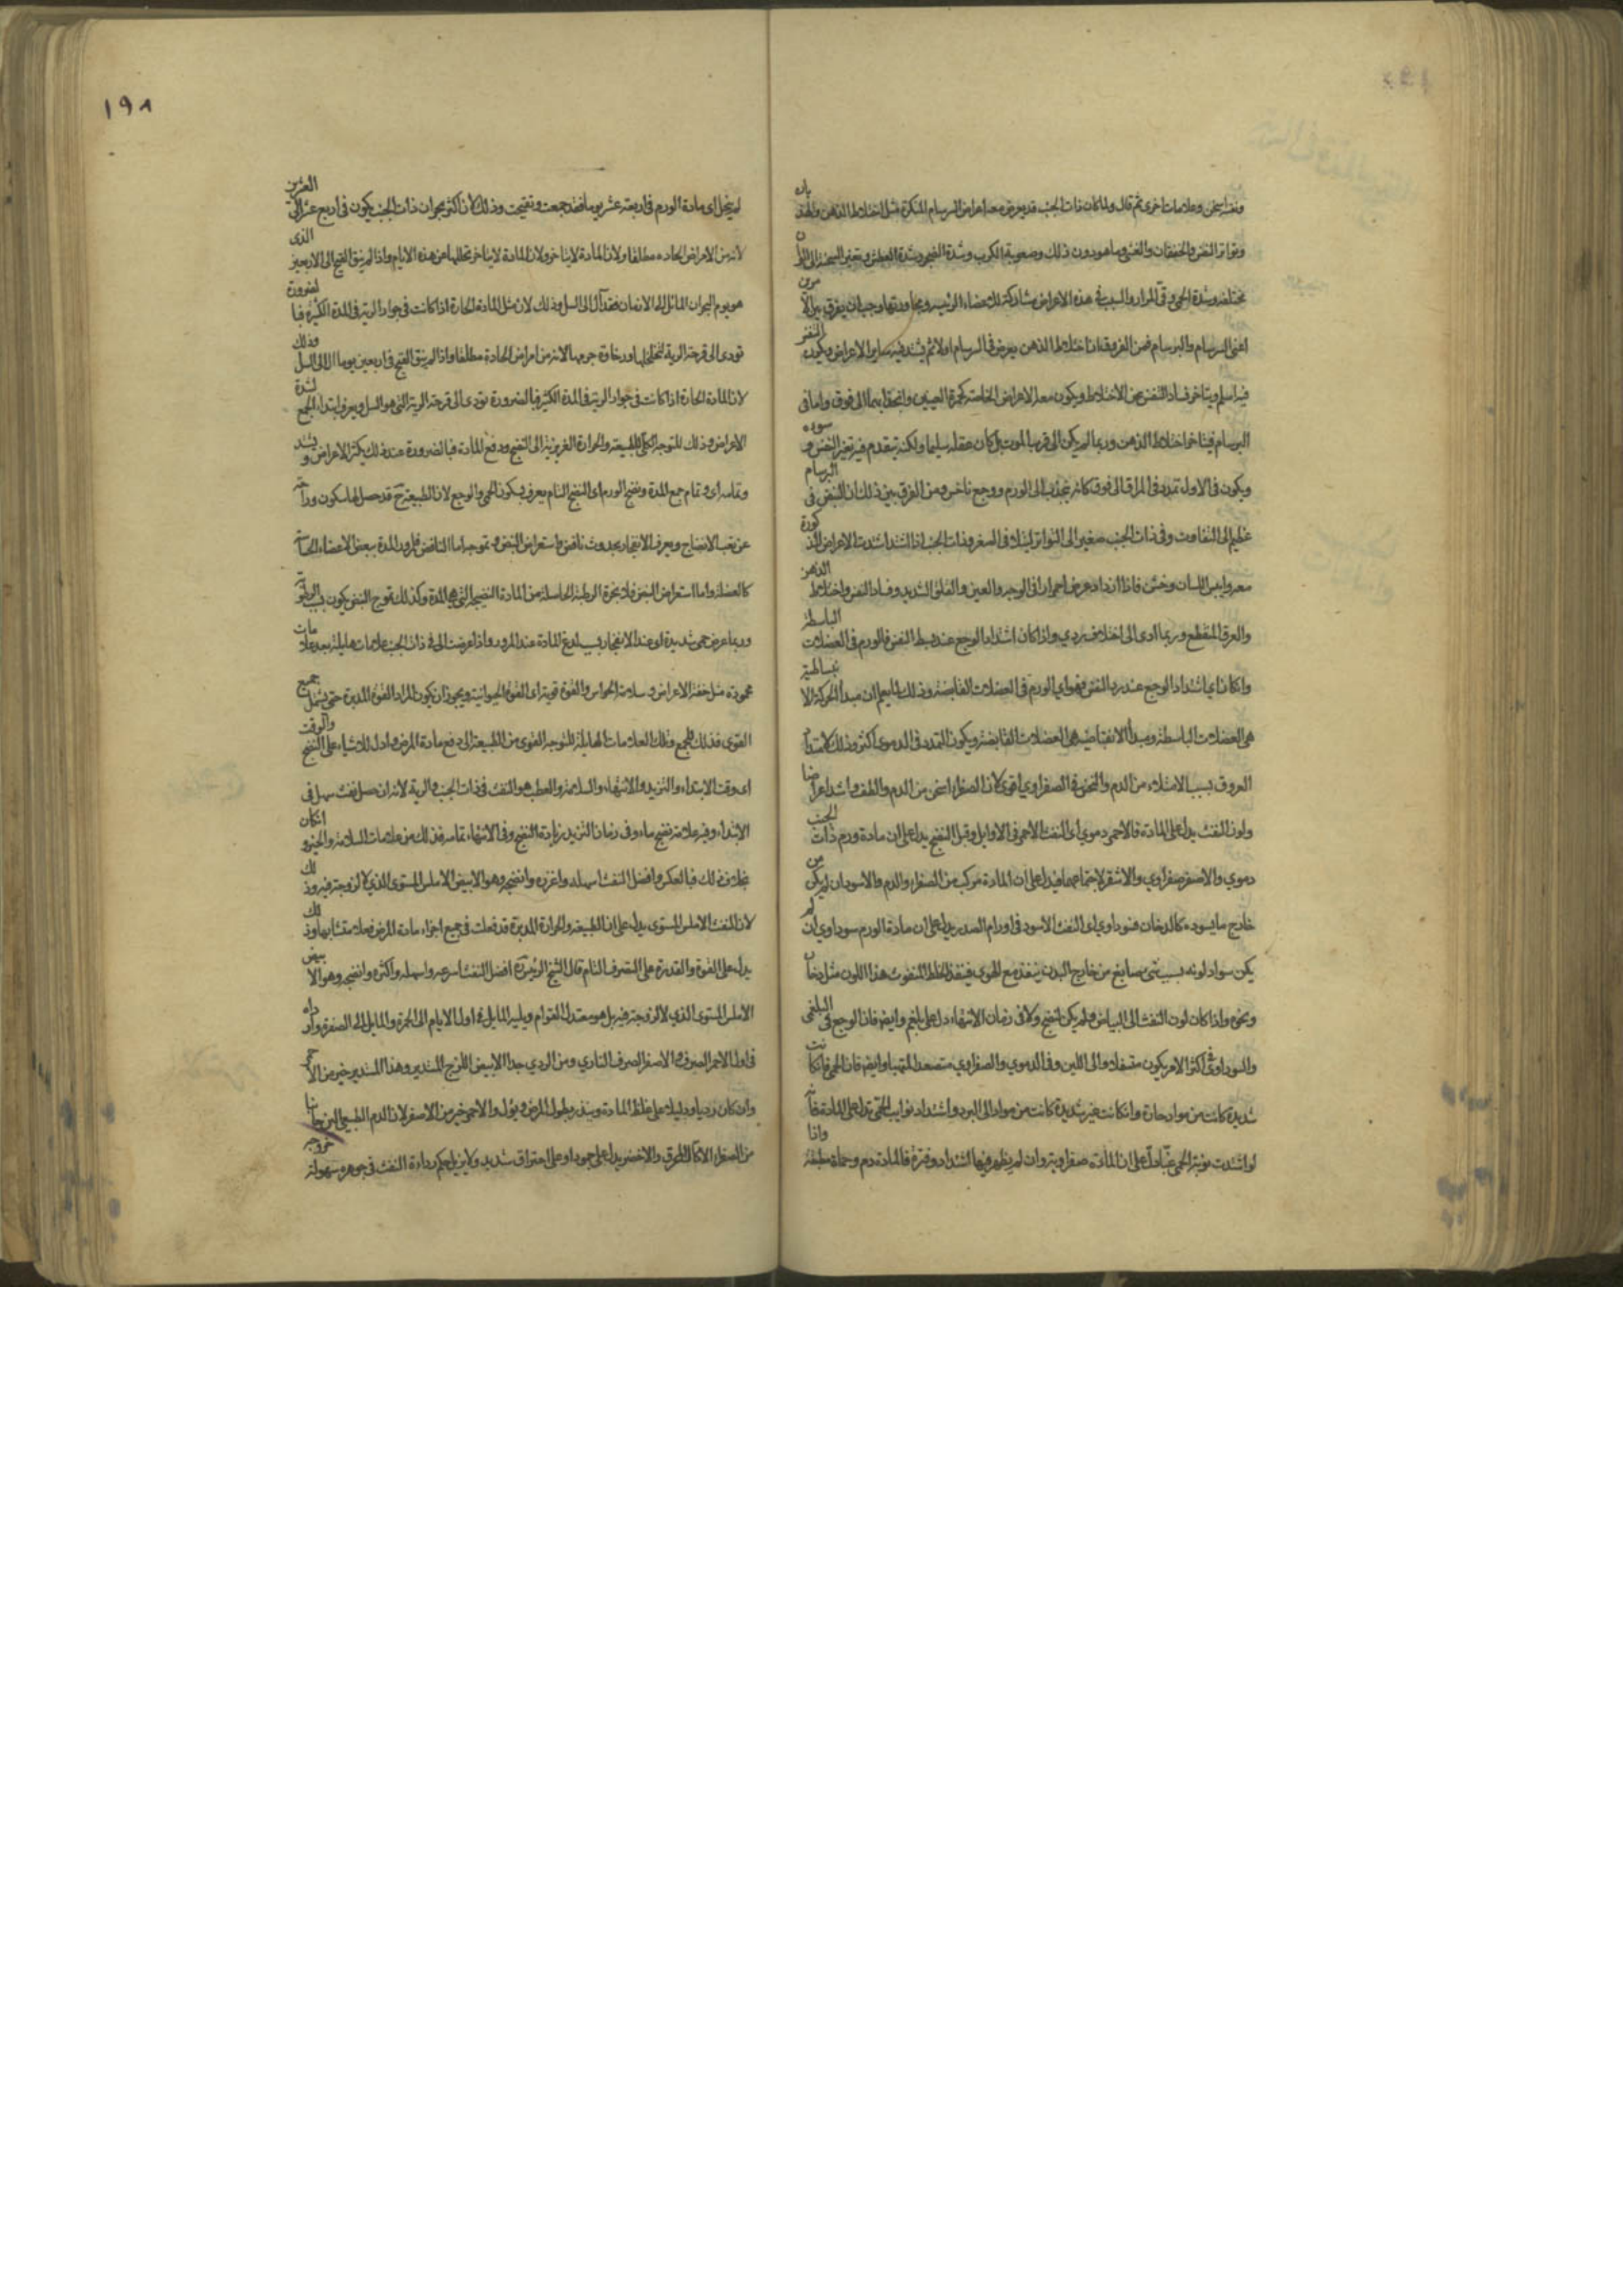 ونفس سخن وعلامات اخرى ثم قال ولما كان ذات الجنب قد يعرض معه اعراض السرسام المنكرة مثل اختلاط الذهن والهذيان
وتواتر النفس والخفقان والغشى وما هو دون ذلك وصعوبة الكرب وشدة الضجر وشدة العطش وتغير السحنة الى الوان
مختلفة وشدة الحمى وقئ المرار والسبب فى هذه الاعراض مشاركته للاعضاء الرئيسة ومجاورتها وجب ان يفرق بين الامرين
اعنى السرسام والبرسام فمن الفروق ان اختلاط الذهن يعرض فى السرسام اولا ثم يشتد فيه ساير الاعراض ويكون النفس
فيه اسلم ويتاخر فساد النفس عن الاختلاط ويكون معه الاعراض الخاصة كحمرة العينين وانجذابهما الى فوق واما فى
البرسام فيتاخر اختلاط الذهن وربما لم يكن الى قرب الموت بل كان عقله سليما ولكنه يتقدم فيه تغير النفس وسوءه
ويكون فى الاول تمدد فى المراق الى فوق كانه ينجذب الى الورم ووجع ناخس ومن الفرق بين ذلك ان النبض فى البرسام
عظيم الى التفاوت وفى ذات الجنب صغير الى التواتر ليتلافى الصغر وذات الجنب اذا اشتد اشتدت الاعراض المذكورة
معه ويبس اللسان وخشن فاذا ازداد عرض احمرار فى الوجه والعين والقلق الشديد وفساد النفس واختلاط الذهن
والعرق المنقطع وربما ادى الى اختلاف ردي واذا كان اشتداد الوجع عند بسط النفس فالورم فى العضلات الباسطة
وان كان اي اشتداد الوجع عند رد النفس فهو اي الورم فى العضلات القابضة وذلك لما يعلم ان مبدأ الحركة الانبساطية
هى العضلات الباسطة ومبدأ الانقباضية هى العضلات القابضة ويكون التمدد فى الدموى اكثر وذلك لامتداد
العروق بسبب الامتلاء من الدم والنخس فى الصفراوي اقوى لان الصفراء اسخن من الدم والطف واشد اعراضا
ولون النفث يدل على المادة فالاحمر دموي اى النفث الاحمر فى الاوايل وقبل النضج يدل على ان مادة ورم ذات الجنب
دموي والاصفر صفراوي والاشقر لاجتماعهما فيدل على ان المادة مركب من الصفراء والدم والاسود ان لم يكن من
خارج ما يسوده كالدخان فسوداوي اى النفث الاسود فى اورام الصدر يدل على ان مادة الورم سوداوي ان لم
يكن سواد لونه بسبب شئ صابغ من خارج البدن ينفذ مع الهوى فيفيد الخلط المنفوث هذا اللون مثل دخان
ونحوه واذا كان لون النفث الى البياض ولم يكن لنضج ولا فى زمان الانتهاء دل على بلغم وايضا فان الوجع فى البلغمى
والسوداوي فى اكثر الامر يكون متسفلا والى اللين وفى الدموي والصفراوي متصعدا ملتهبا وايضا فان الحمى فان كانت
شديدة كانت من مواد حارة وان كانت غير شديدة كانت من مواد الى البرد واشتداد نوايب الحمى يدل على المادة فانه
لو اشتدت نوبة الحمى غبا دل على ان المادة صفراوية وان لم يظهر فيها اشتداد وفترة فالمادة دم وحماه مطبقة واذا
١٩٨
لم ينحل اى مادة الورم فى اربعة عشر يوما فقد جمعت وتقيحت وذلك لان اكثر بحران ذات الجنب يكون فى اربع عشر الى العشرين
لانه من الامراض الحادة مطلقا ولان المادة لا يتاخر ولان المادة لا يتاخر تحللها عن هذه الايام واذا لم ينق القيح الى الاربعين الذى
هو يوم البحران المائل اليه الازمان فقد آل الى السل وذلك لان مثل المادة الحارة اذا كانت فى جوار الرية فى المدة الكثيرة فبالضرورة
تودى الى قرحة الرية لتخلخلها ورخاوة جرمها لانه من امراض الحادة مطلقا واذا لم ينق القيح فى اربعين يوما آل الى السل وذلك
لان المادة الحارة اذا كانت فى جوار الرية فى المدة الكثيرة فبالضرورة تودى الى قرحة الرية التى هو السل ويعرف ابتداء الجمع لشدة
الاعراض وذلك للتوجه الكلى للطبيعة والحرارة الغريزية الى النضج ودفع المادة فبالضرورة عند ذلك يكثر الاعراض ويشتد
وتمامه اى وتمام جمع المدة ونضج الورم اى النضج التام يعرف بسكون الحمى والوجع لان الطبيعة ح قد حصل لها سكون وراحة
عن تعب الانضاج ويعرف الانفجار بحدوث نافض واستعراض النبض وتموجه اما النافض فلورود المدة ببعض الاعضاء الحساسة
كالعضلة واما استعراض النبض فلابخرة الرطبة الحاصلة من المادة النضيجة التى هى المدة وكذلك تموج النبض يكون بسبب الرطوبة
وربما عرض حمى شديدة اى عند الانفجار بسبب لدع المادة عند المرور واذا عرضت الى فى ذات الجنب علامات هايلة بعد علامات
محمودة مثل خفة الاعراض وسلامة الحواس والقوة قوية اى القوة الحيوانية ويجوز ان يكون المراد القوة المدبرة حتى يشمل جميع
القوى فذلك للجمع وتلك العلامات الهايلة للتوجه القوى من الطبيعة الى دفع مادة المرض وادل للاشياء على النضج والوقت
اى وقت الابتداء والتزيد والانتهاء والسلامة والعطب هو النفث فى ذات الجنب والرية لانه ان حصل نفث سهل فى
الابتداء وفيه علامة نضج ما وفى زمان التزيد زيادة النضج وفى الانتهاء تمامه فذلك من علامات السلامة والخير وان كان
بخلاف ذلك فبالعكس وافضل النفث اسهله واغزره وانضجه وهو الابيض الاملس المستوى الذي لا لزوجة فيه وذلك
لان النفث الاملس المستوى يدل على ان الطبيعة والحرارة المدبرة قد فعلت فى جميع اجزاء مادة المرض فعلا متشابها وذلك
يدل على القوة والقدرة على التصرف التام قال الشيخ الرئيس افضل النفث اسرعه واسهله واكثره وانضجه وهو الابيض
الاملس المستوى الذي لا لزوجة فيه بل هو معتدل القوام ويليه المايل فى اول الايام الى الحمرة والمايل الى الصفرة وارداه
فى اول الاحمر الصرف والاصفر الصرف النارى ومن الردي جدا الابيض اللزج المستدير وهذا المستدير خير من الاحمر
وان كان رديا ودليلا على غلظ المادة وينذر بطول المرض ويؤل والاحمر خير من الاصفر لان الدم الطبيعى الين جانبا
من الصفراء الاكال المحرق والاخضر يدل على جمود او على احتراق شديد ولا يزيل حكم رداءة النفث فى جوهره سهولة خروجه